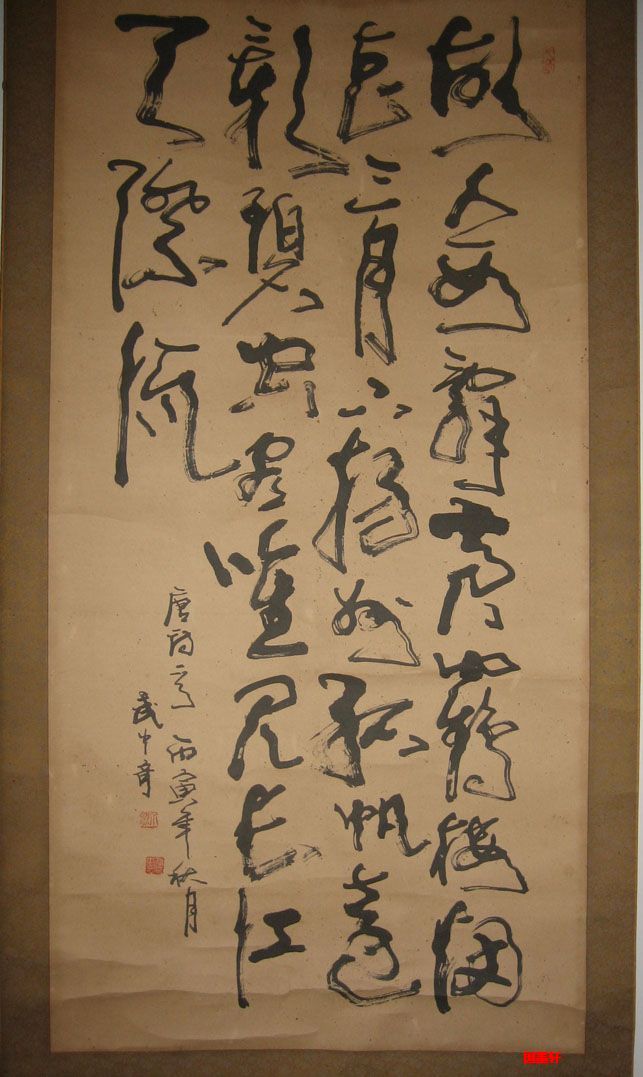 故人西辭黄鶴樓烟
花三月下揚州孤帆遠
影碧空盡唯見長江
天際流
唐詩一首 丙寅年秋月
武中奇